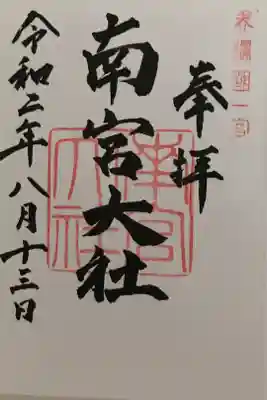 美濃國一宮
奉拝
南宮大社
南宮大社
令和二年八月十三日